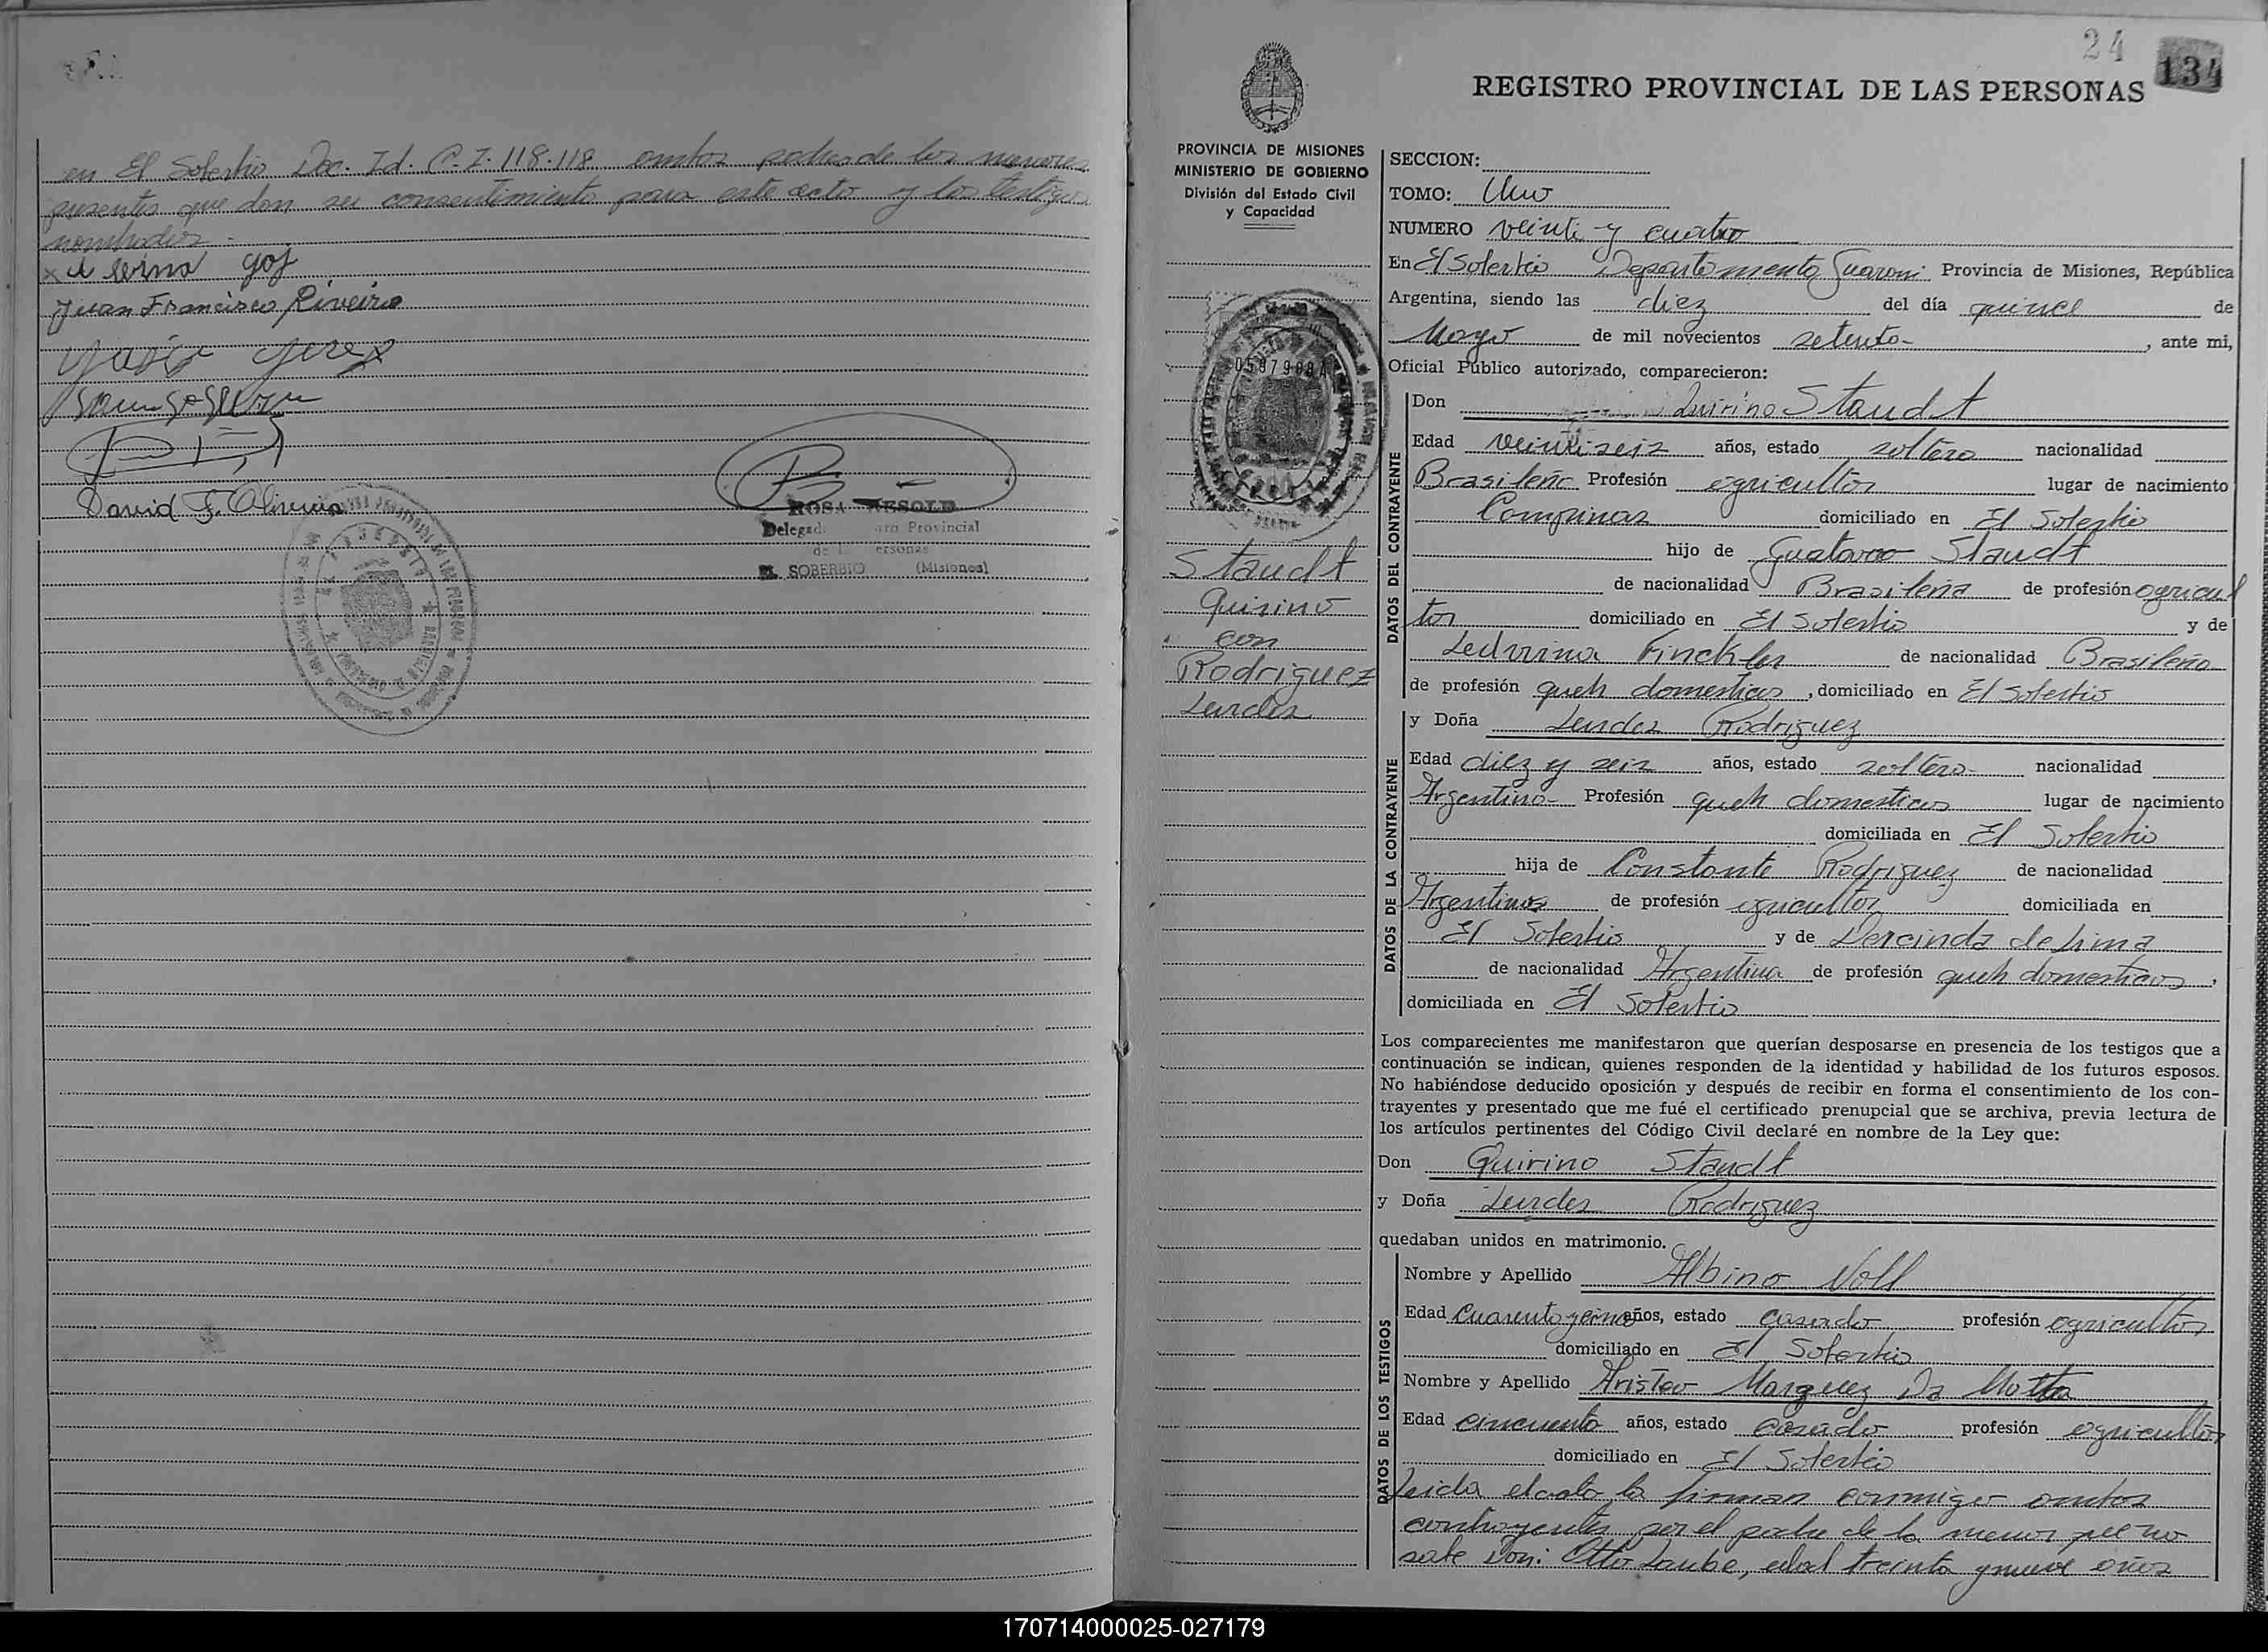 en El Soberbio Doc. Id. C.I. 118.118 ambos padres de los menores
presentes que dan su consentimiento para este acto y los testigos
nombrados.-
Juan Francisco Riveiro
David F. Oliveira
ROSA
Delegad Provincial
de
EL SOBERBIO (Misiones)
24
134
REGISTRO PROVINCIAL DE LAS PERSONAS
PROVINCIA DE MISIONES
MINISTERIO DE GOBIERNO
División del Estado Civil
y Capacidad
Staudt
Quirino
con
Rodriguez
Lurdes
SECCION:
TOMO: Uno
NUMERO veinte y cuatro
En El Soberbio Departamento Guarani Provincia de Misiones, República
Argentina, siendo las diez del día quince de
Mayo de mil novecientos setenta- , ante mi,
Oficial Público autorizado, comparecieron:
DATOS DEL CONTRAYENTE
Don Quirino Staudt
Edad veintiseis años, estado soltero nacionalidad
Brasileño Profesión agricultor lugar de nacimiento
Campinas domiciliado en El Soberbio
hijo de Gustavo Staudt
de nacionalidad Brasileña de profesión agricul
tor domiciliado en El Soberbio y de
Ledvina Finckler de nacionalidad Brasileña
de profesión queh domesticos , domiciliado en El Soberbio
DATOS DE LA CONTRAYENTE
y Doña Lurdes Rodriguez
Edad diez y seis años, estado soltera- nacionalidad
Argentina- Profesión queh domesticos lugar de nacimiento
domiciliada en El Soberbio
hija de Constante Rodriguez de nacionalidad
Argentina de profesión agricultor domiciliada en
El Soberbio y de Dercinda de Lima
de nacionalidad Argentina de profesión queh domesticos ,
domiciliada en El Soberbio
Los comparecientes me manifestaron que querían desposarse en presencia de los testigos que a
continuación se indican, quienes responden de la identidad y habilidad de los futuros esposos.
No habiéndose deducido oposición y después de recibir en forma el consentimiento de los con-
trayentes y presentado que me fué el certificado prenupcial que se archiva, previa lectura de
los artículos pertinentes del Código Civil declaré en nombre de la Ley que:
Don Quirino Staudt
y Doña Lurdes Rodriguez
quedaban unidos en matrimonio.
DATOS DE LOS TESTIGOS
Nombre y Apellido Albino Noll
Edad Cuarenta y años, estado casado profesión agricultor
domiciliado en El Soberbio
Nombre y Apellido Aristeo Marquez Da Motta
Edad cincuenta años, estado casado profesión agricultor
domiciliado en El Soberbio
Leida el acta la firman conmigo ambos
contrayentes por el padre de la menor que no
sabe Don: Otto Laube, edad treinta y nueve años
170714000025-027179